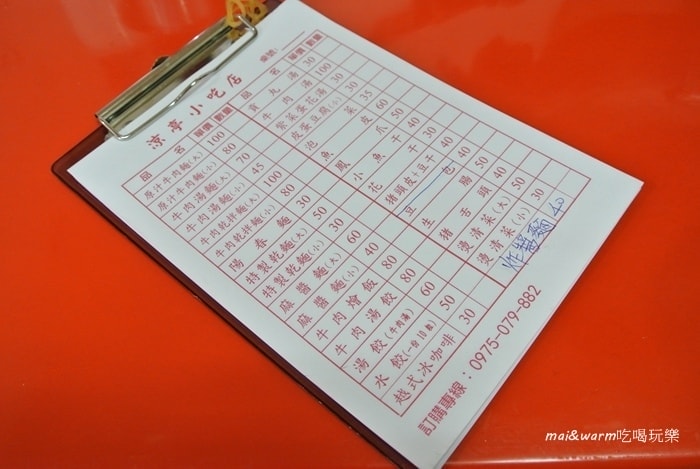 涼亭小吃店
桌號:
品名 單價 數量
原汁牛肉麵(大) 100
原汁牛肉麵(小) 80
牛肉湯麵(大) 70
牛肉湯麵(小) 45
牛肉乾拌麵(大) 100
牛肉乾拌麵(小) 80
陽春麵 30
特製乾麵(大) 50
特製乾麵(小) 30
麻醬麵(大) 60
麻醬麵(小) 40
牛肉燴飯 80
牛肉湯餃 80
湯餃(牛肉湯) 60
水餃(一份10數) 50
越式冰咖啡 30
品名 單價 數量
貢丸湯 30
牛肉湯 100
紫菜蛋花湯 30
皮蛋豆腐(小) 30
泡菜 35
魚皮 60
鳳爪 50
小魚干 40
花干 30
豬頭皮+豆干 40
豆包 40
生腸 50
豬舌頭 40
燙清菜(大) 50
燙清菜(小) 30
炸醬麵 40
訂購專線:0975-079-882
mai&warm吃喝玩樂